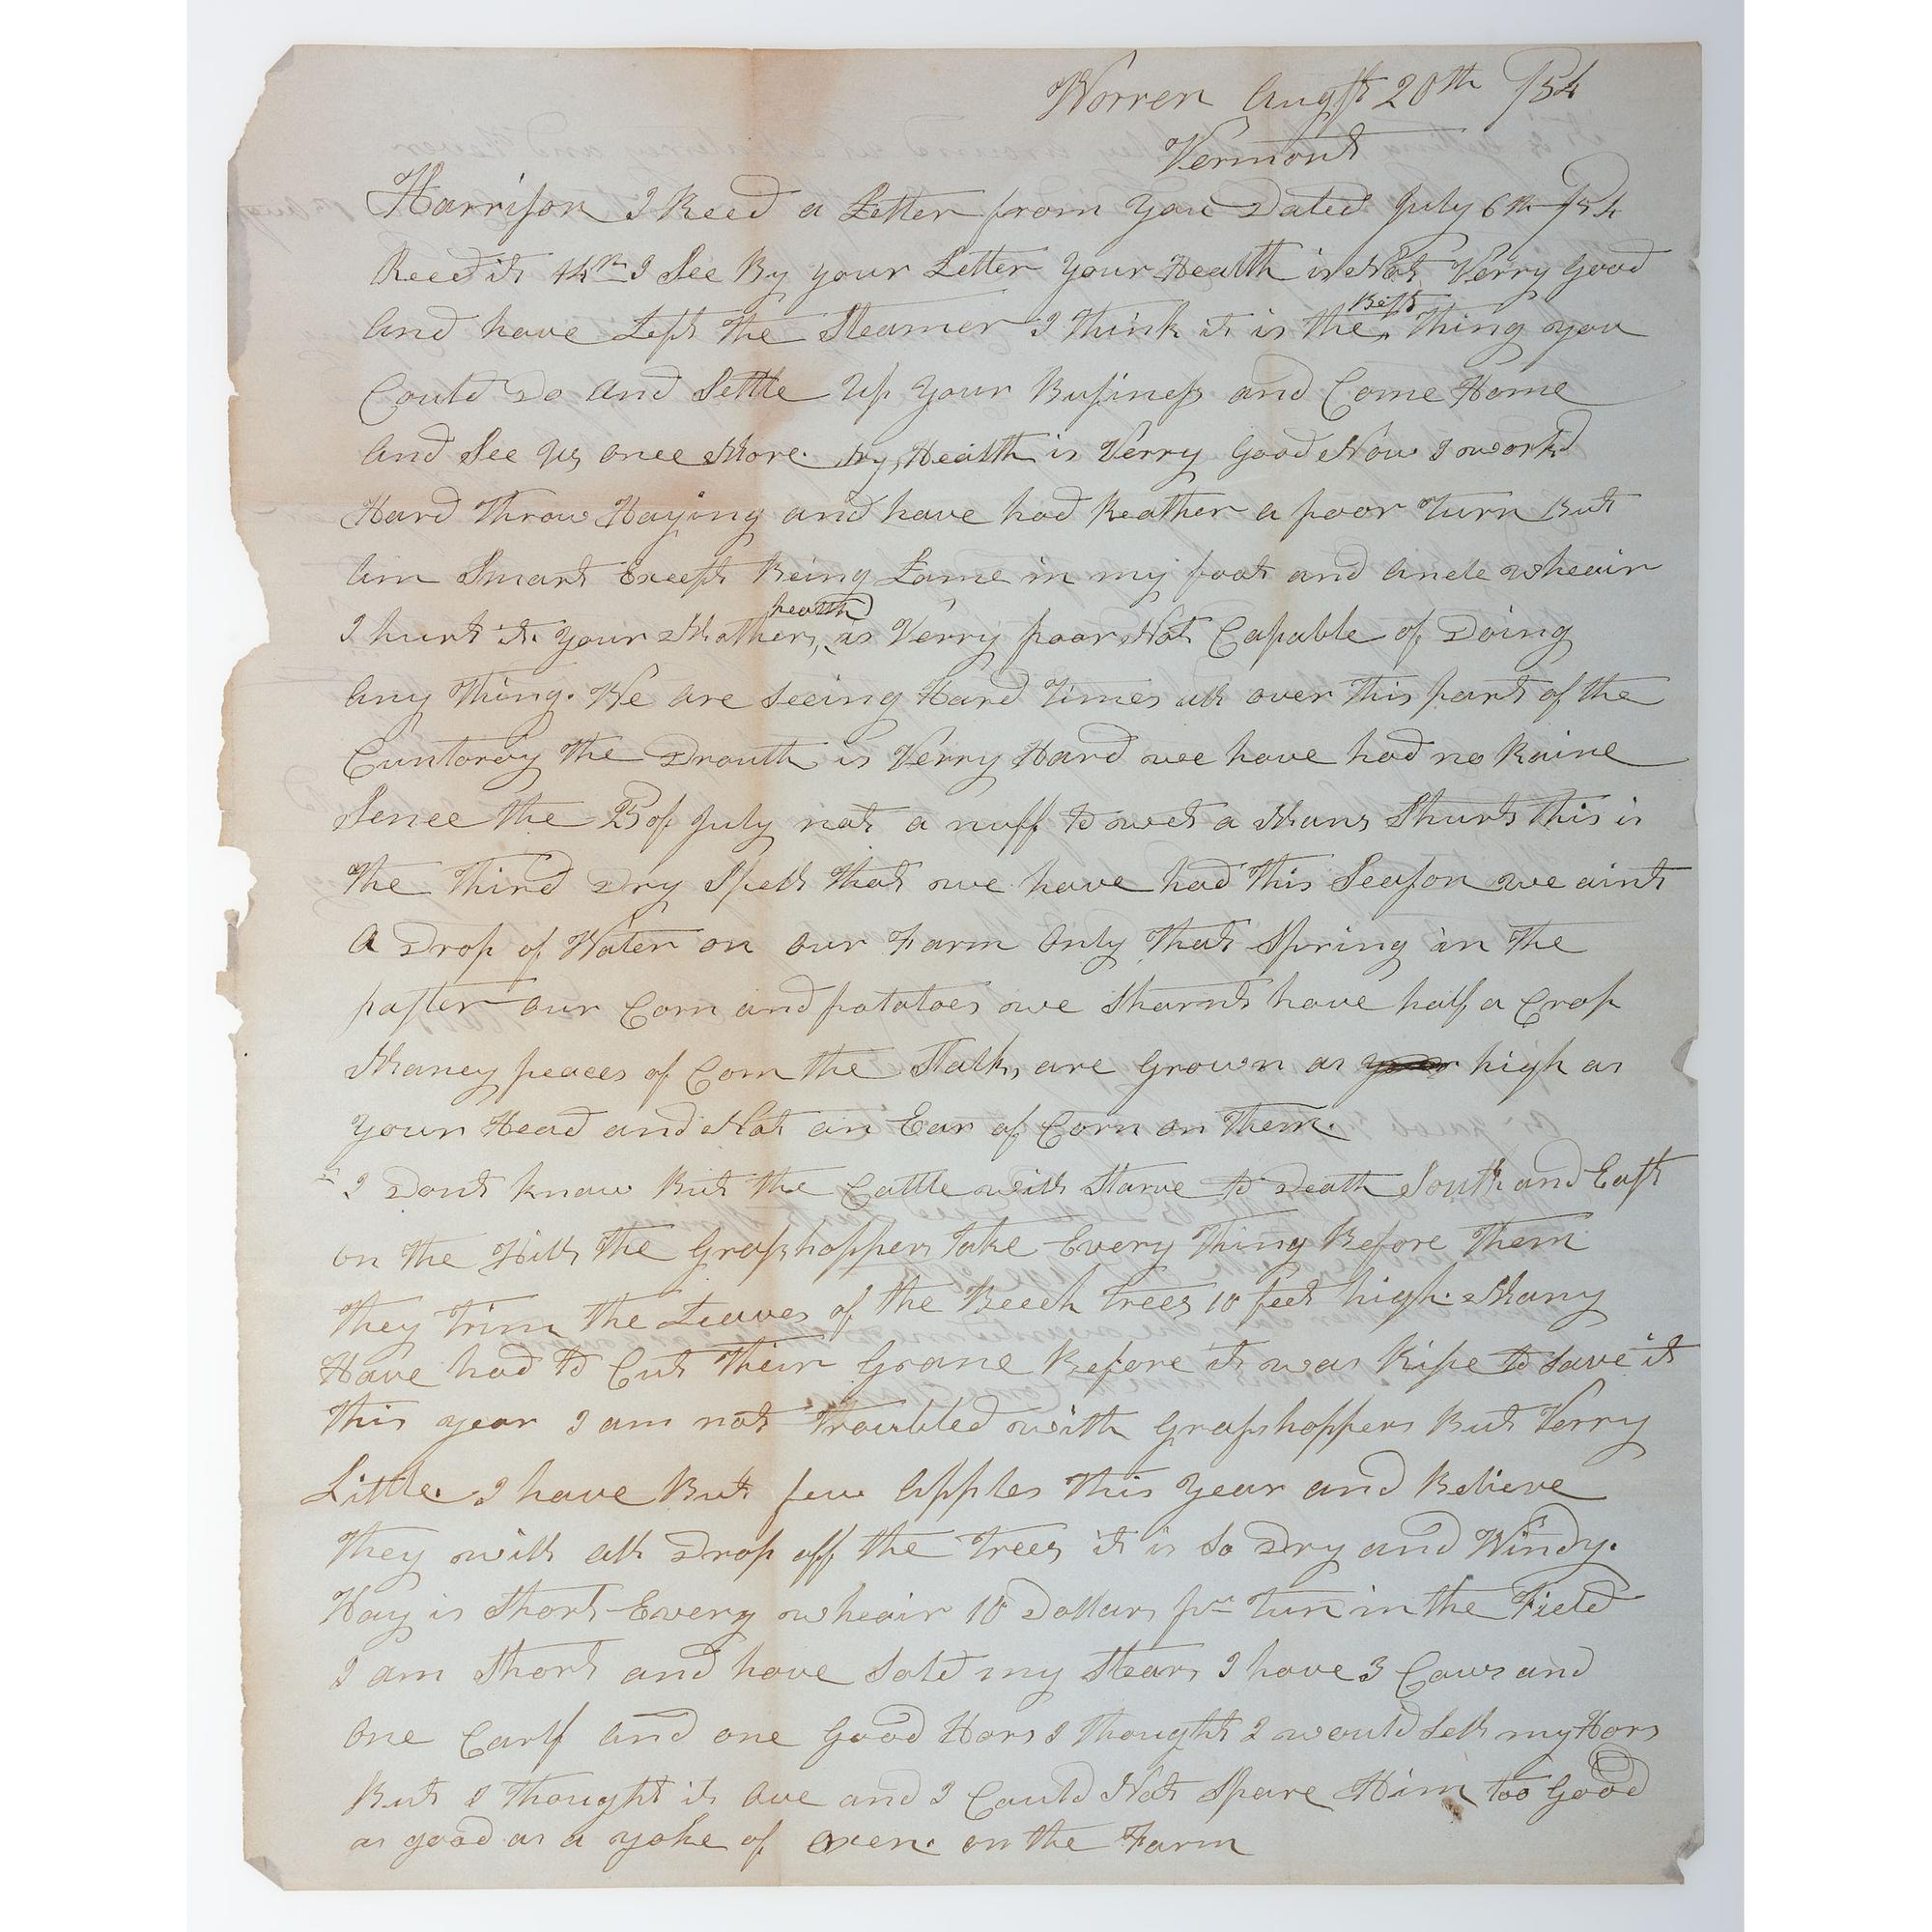 Warren Augst 20th /54
Vermont
Harrison I Recd a Letter from you Dated July 6th /54
Recd it 14th I See By your Letter your Health is Not Verry Good
And have Left the Steamer I Think it is the Best Thing you
Could Do And Settle Up your Business and Come Home
And See Us once More. My Health is Verry Good Now I workd
Hard Throw Haying and have had Reather a poor Turn But
Am Smart Except Being Lame in my foot and Ancle wheair
I hurt it. your Mothers health is Verry poor Not Capable of Doing
Any Thing. We are Seeing Hard Times all over This part of the
Cuntoray the Drouth is Verry Hard we have had no Raine
Sence the 25 of July not a nuff to wet a Mans Shurt This is
the Third Dry Spell that we have had This Season we aint
A Drop of Water on our Farm Only That Spring in The
paster our Corn and potatoes we Sharnt have half a Crop
Maney peaces of Corn the Stalks are Grown as high as
your Head and Not an Ear of Corn on Them.
I Dont know But the Cattle will Starve to Death South and East
on the Hills the Grasshoppers Take Every Thing Before Them
They Trim the Leaves of the Beech Trees 10 feet high. Many
Have had to Cut Their Grane Before it was Ripe to Save it
This year I am not Troubled with Grasshoppers But Verry
Little. I have But few Apples This Year and Believe
They will all Drop off the Trees it is So Dry and Windy.
Hay is Short Every wheair 10 Dollars pr Tun in the Field
I am Short and have Sold my Stears I have 3 Caws and
One Carlf and one Good Hors I Thought I would Sell my Hors
But I Thought it Ove and I Could Not Spare Him too Good
as good as a yoke of Oxen. on the Farm